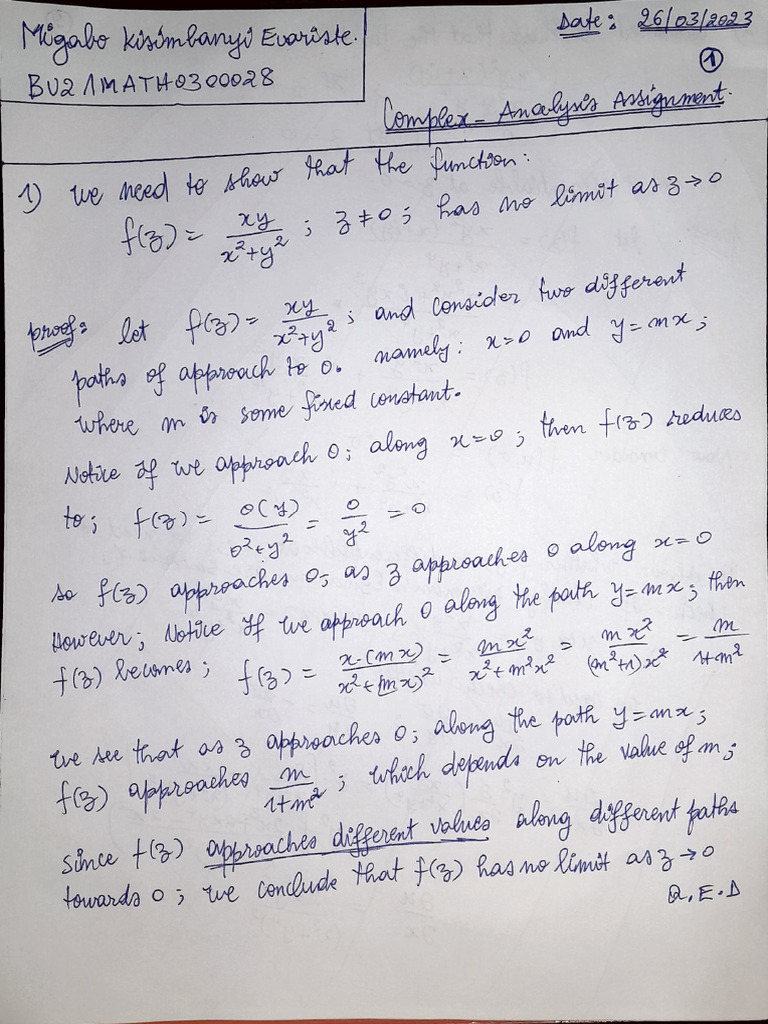 Migabo Kisimbanyi Evariste.
BU21MATH0300028
Date: 26/03/2023
1
Complex-Analysis Assignment.
1) we need to show that the function:
f(z) = xy/(x²+y²) ; z ≠ 0 ; has no limit as z → 0
proof: let f(z) = xy/(x²+y²) ; and consider two different
paths of approach to 0. namely: x=0 and y=mx ;
where m is some fixed constant.
Notice If we approach 0; along x=0 ; then f(z) reduces
to; f(z) = 0(y)/(0²+y²) = 0/y² = 0
so f(z) approaches 0; as z approaches 0 along x=0
However; Notice If we approach 0 along the path y=mx; then
f(z) becomes; f(z) = x·(mx)/(x²+(mx)²) = mx²/(x²+m²x²) = mx²/((m²+1)x²) = m/(1+m²)
we see that as z approaches 0; along the path y=mx ;
f(z) approaches m/(1+m²) ; which depends on the value of m;
Since f(z) approaches different values along different paths
towards 0 ; we conclude that f(z) has no limit as z → 0
Q.E.D